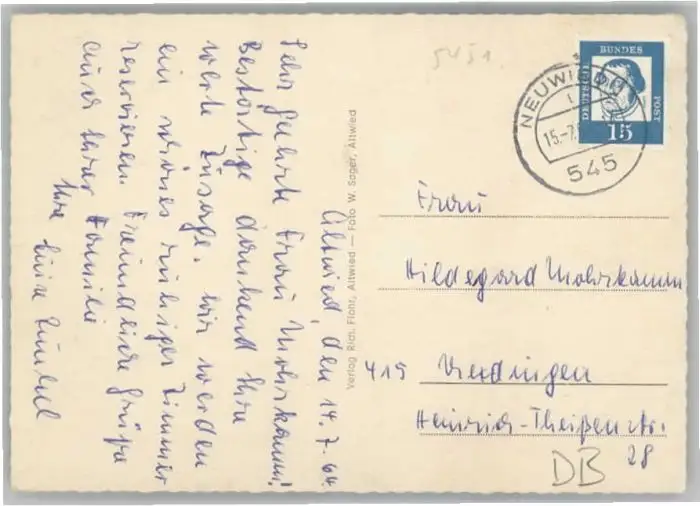 Altwied, den 14. 7. 64
Sehr geehrte Frau Mohrkamm!
Bestätige dankend Ihre
werte Zusage. Wir werden
ein schönes ruhiges Zimmer
reservieren. Freundliche Grüße
auch Ihrer Familie
Ihre
Verlag Rich. Flohr, Altwied — Foto W. Sager, Altwied
5451.
DEUTSCHE
BUNDES
POST
15
NEUWIED
15.-7.
545
Frau
Hildegard Mohrkamm
415 Uerdingen
Heinrich-Theißen str.
28
DB